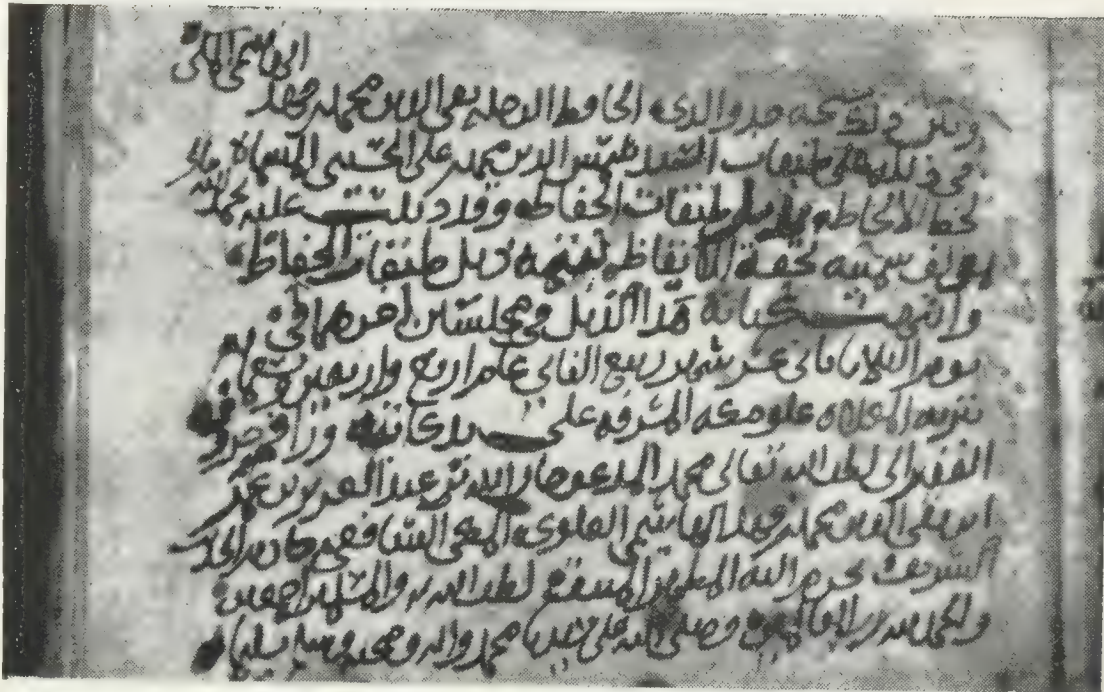 الهاشمي المكي
ومن نسخة جد والدي الحافظ تقي الدين محمد بن فهد
في ذيله على طبقات السيد شمس الدين محمد بن علي الحسيني المسماة
لحظ الالحاظ بذيل طبقات الحفاظ وقد ذيلت عليه بحمد الله
بمولف سميته تحفة الايقاظ بتتمة ذيل طبقات الحفاظ
وانتهت كتابة هذا الذيل في مجلسين اخرهما في
يوم الثلاثا ثاني عشر شهر ربيع الثاني عام اربع واربعين وتسعماية
بتربة المعلاه علو مكه المشرفه على يد كاتبه
الفقير الى لطف الله تعالى محمد المدعو جار الله بن عبد العزيز بن عمر
ابن تقي الدين محمد بن فهد الهاشمي العلوي المكي الشافعي خادم الحديث
الشريف بحرم الله المطهر لطف الله به والمسلمين اجمعين
والحمد لله رب العالمين وصلى الله على سيدنا محمد واله وصحبه وسلم تسليما